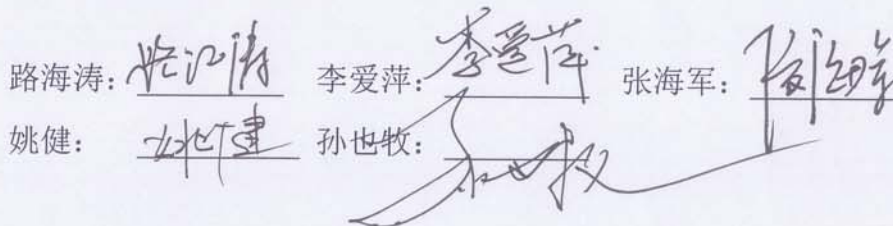 路海涛：路海涛 李爱萍：李爱萍 张海军：张海军
姚健：姚健 孙也牧：孙也牧